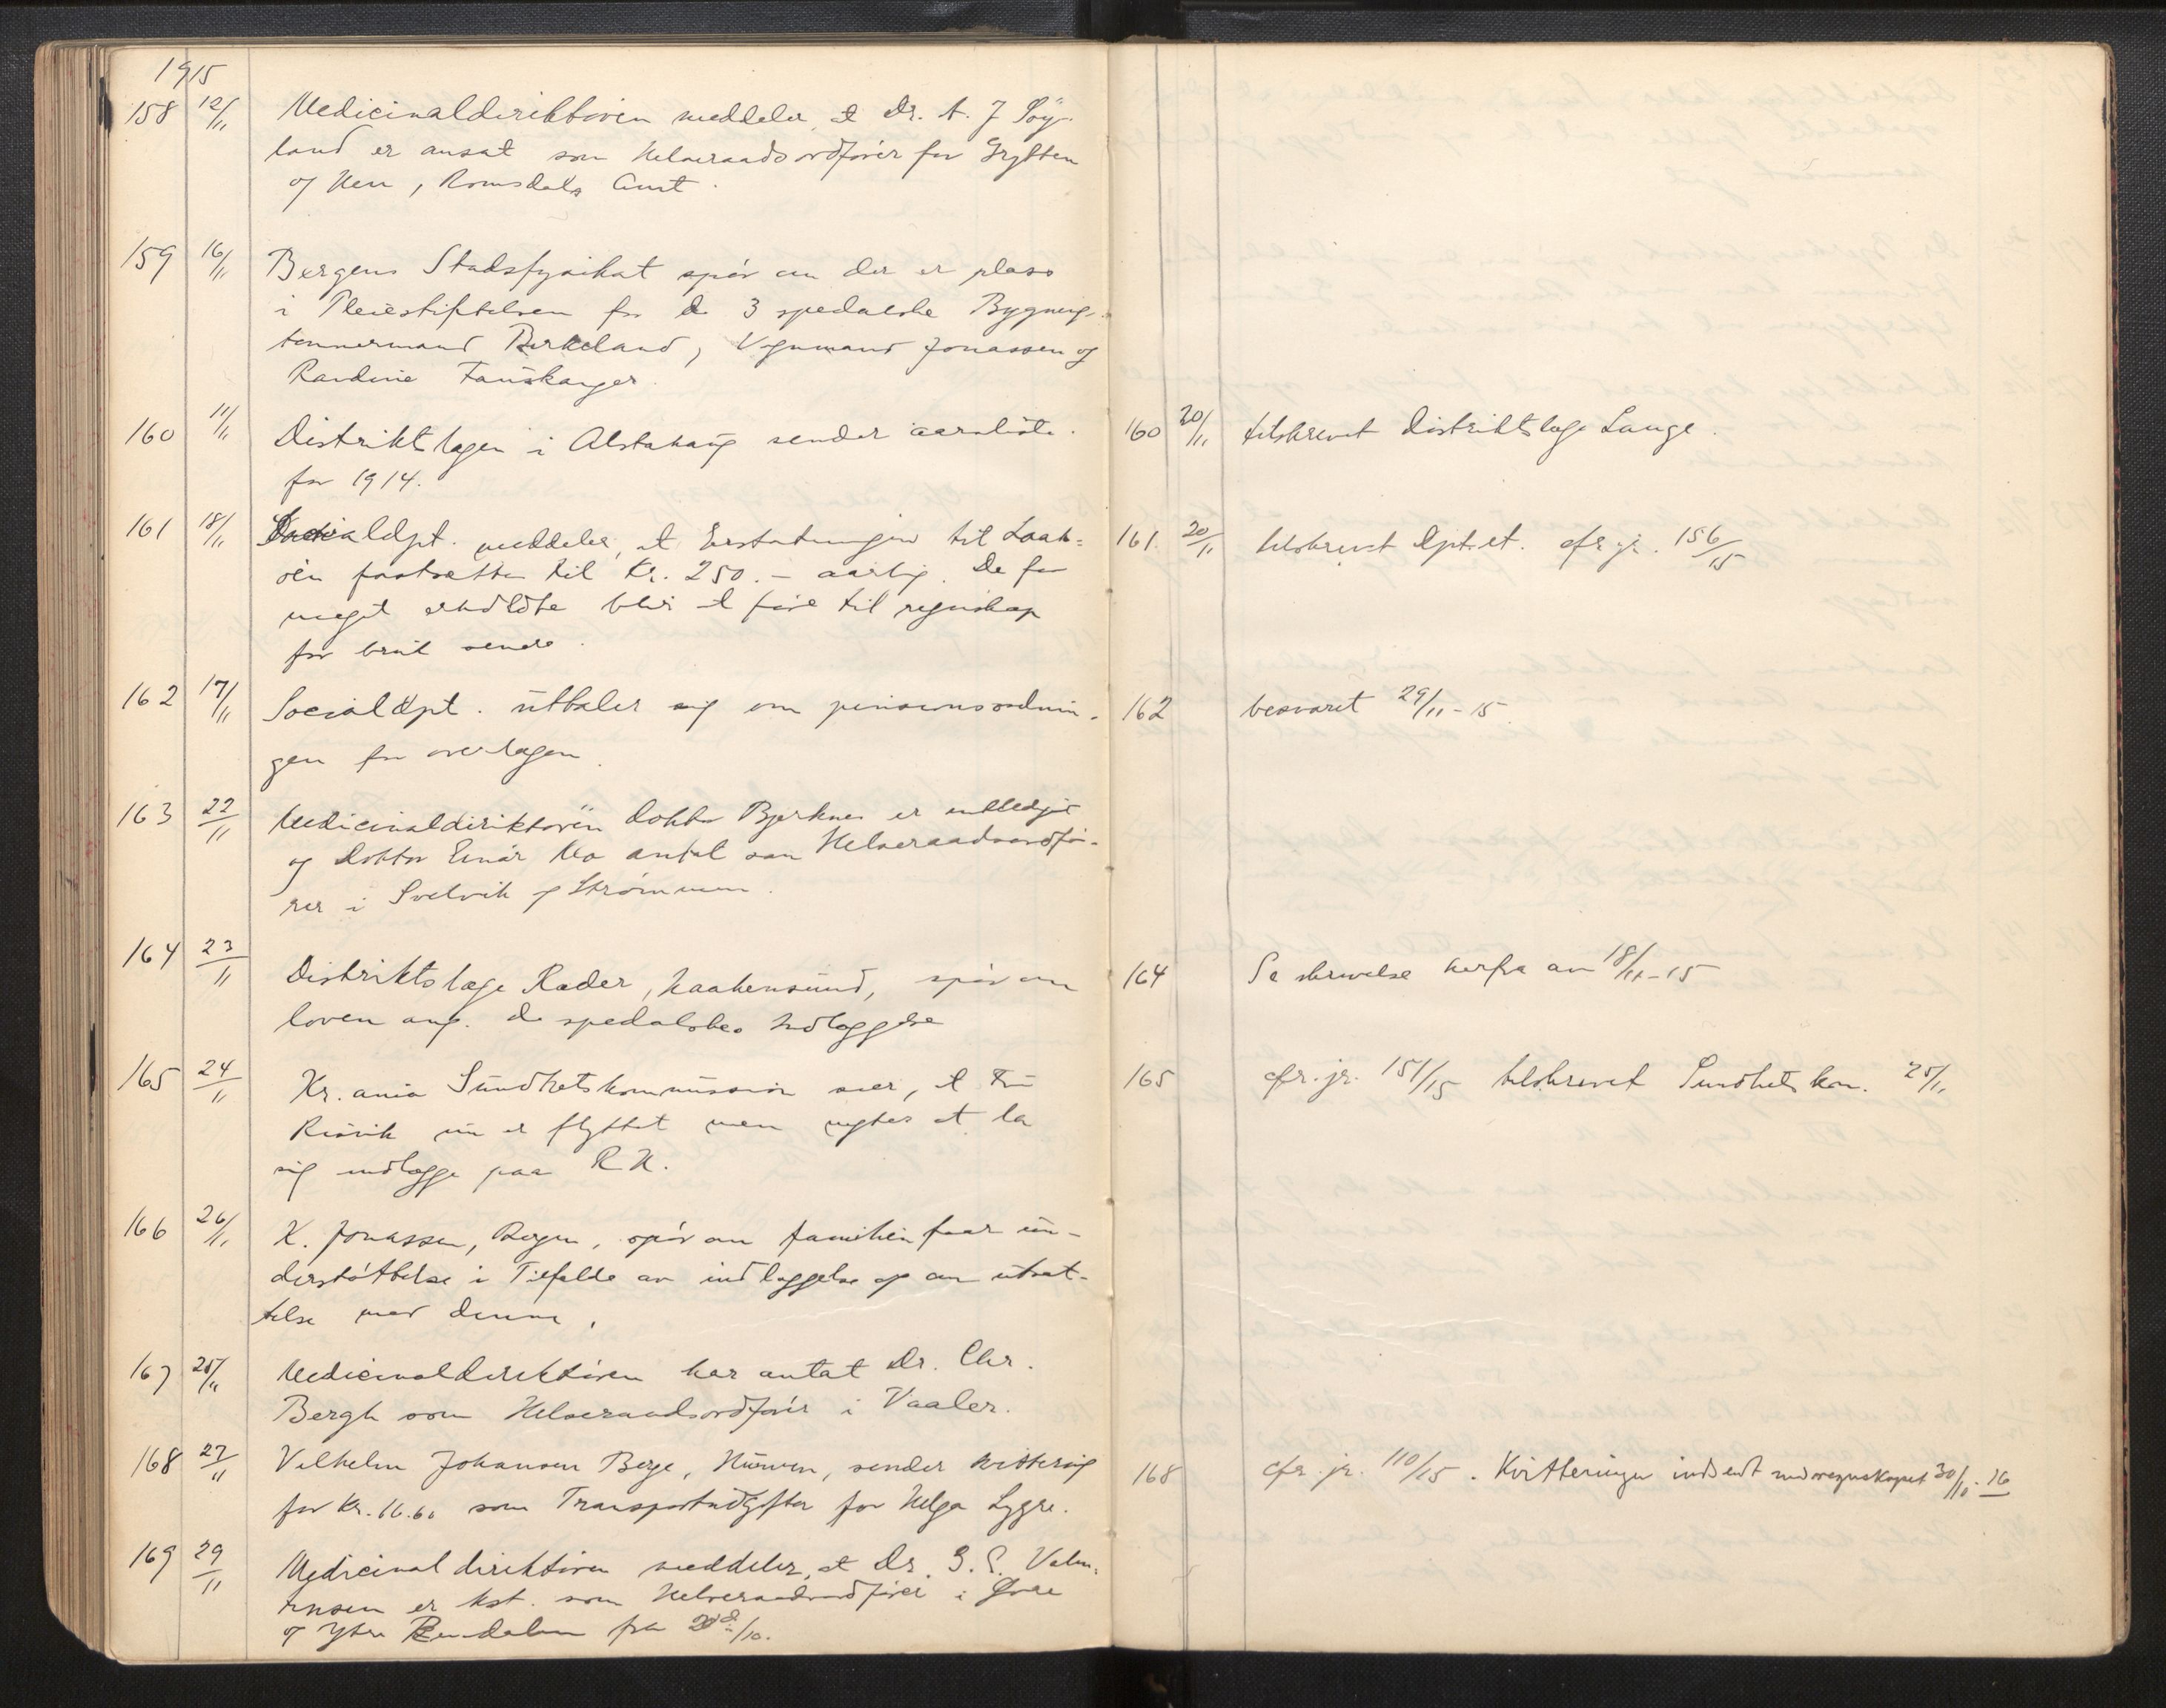 1915
158 12/11 Medicinaldirektøren meddeler, at Dr. A. J. Søy-
land er ansat som Helseraadsordfører for Grytten
og Hen, Romsdals Amt.
159 16/11 Bergens Stadsfysikat spør om der er plass
i Pleiestiftelsen for de 3 spedalske Bygnings-
tømmermand Birkeland, Vognmand Jonassen og
Randine Fauskanger.
160 11/11 Distriktslægen i Alstahaug sender aarsliste
for 1914.
161 18/11 Socialdpt. meddeler, at Erstatningen til
fastsættes til Kr. 250.- aarlig. De for
meget erholdte blir at føre til regnskap
for bruk senere.
162 17/11 Socialdpt. uttaler sig om pensionsordnin-
gen for overlægen.
163 22/11 Medicinaldirektøren Doktor Bjerknes er entlediget
og Doktor Einar Mo antat som Helseraadsordfø-
rer i Svelvik og Strømmen.
164 23/11 Distriktslæge Rader, Haakensund, spør om
loven ang. de spedalskes Indlæggelse
165 24/11 Kr.ania Sundhetskommission sier, at Fru
Risvik nu er flyttet men negter at la
sig indlægge paa R.H.
166 26/11 K. Jonassen, Bergen, spør om familien faar un-
derstøttelse i Tilfælde av indlæggelse og om utsæt-
telse med denne.
167 25/11 Medicinaldirektøren har antat Dr. Chr.
Bergh som Helseraadsordfører i Vaaler.
168 27/11 Vilhelm Johansen Berge, sender kvittering
for Kr. 16.60 som Transportudgifter for Helga Lygre.
169 29/11 Medicinaldirektøren meddeler, at Dr.
er kst. som Helseraadsordfører i Øvre
og Ytre Rendalen fra
160 20/11 tilskrevet Distriktslæge Lange.
161. 20/11 tilskrevet Dptet. cfr. jr. 156/15
162 besvaret 29/11-15
164 Se skrivelse herfra av 18/11-15
165 cfr. jr. 151/15 tilskrevet Sundhetskom. 25/11
168 cfr. jr. 110/15. Kvitteringen indsendt med regnskapet 30/10-16